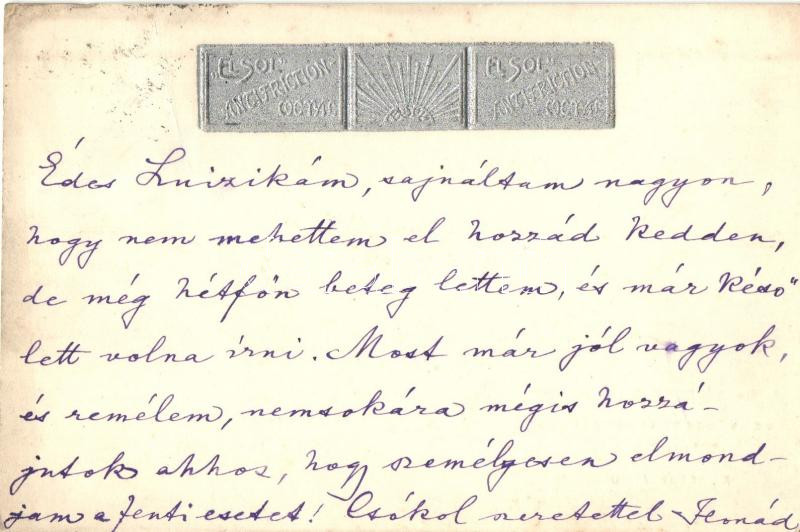 "EL SOL" "EL SOL"
ANTIFRICTION ANTIFRICTION
METAL METAL
Édes Luizikám, sajnáltam nagyon,
hogy nem mehettem el hozzád kedden,
de még hétfőn beteg lettem, és már késő
lett volna írni. Most már jól vagyok,
és remélem, nemsokára mégis hozzá-
jutok ahhoz, hogy személyesen elmond-
jam a fenti esetet! Csókol szeretettel